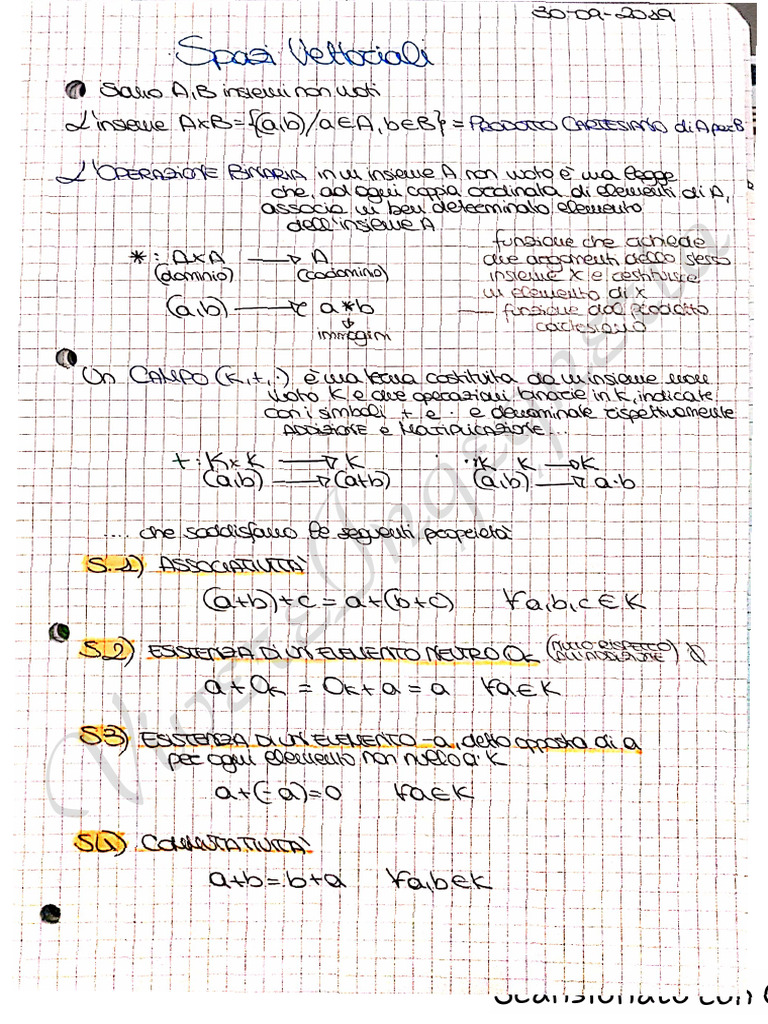 30-09-2019
Spazi Vettoriali
Siano A,B insiemi non vuoti
L'insieme AxB={(a,b)/a∈A, b∈B} = PRODOTTO CARTESIANO di A per B
L'OPERAZIONE BINARIA in un insieme A non vuoto è una legge
che, ad ogni coppia ordinata di elementi di A,
associa un ben determinato elemento
dell'insieme A
funzione che richiede
due argomenti dello stesso
insieme X e restituisce
un elemento di X
funzione dal prodotto
cartesiano
*: AxA → A
(dominio) (codominio)
(a,b) → a*b
immagini
Un CAMPO (K,+,·) è una terna costituita da un insieme non
vuoto K e due operazioni binarie in K, indicate
con i simboli + e · e denominate rispettivamente
ADDIZIONE e MOLTIPLICAZIONE.
+: KxK → K ·: K K → K
(a,b) → (a+b) (a,b) → a·b
.... che soddisfano le seguenti proprietà
S.1) ASSOCIATIVITA'
(a+b)+c = a+(b+c) ∀a,b,c ∈ K
S2) ESISTENZA DI UN ELEMENTO NEUTRO Ok (NULLO RISPETTO ALL'ADDIZIONE)
a+Ok = Ok+a = a ∀a∈K
S3) ESISTENZA DI UN ELEMENTO -a, detto opposto di a
per ogni elemento non nullo di K
a+(-a)=0 ∀a∈K
S4) COMMUTATIVITA'
a+b=b+a ∀a,b∈K
Scansionato con